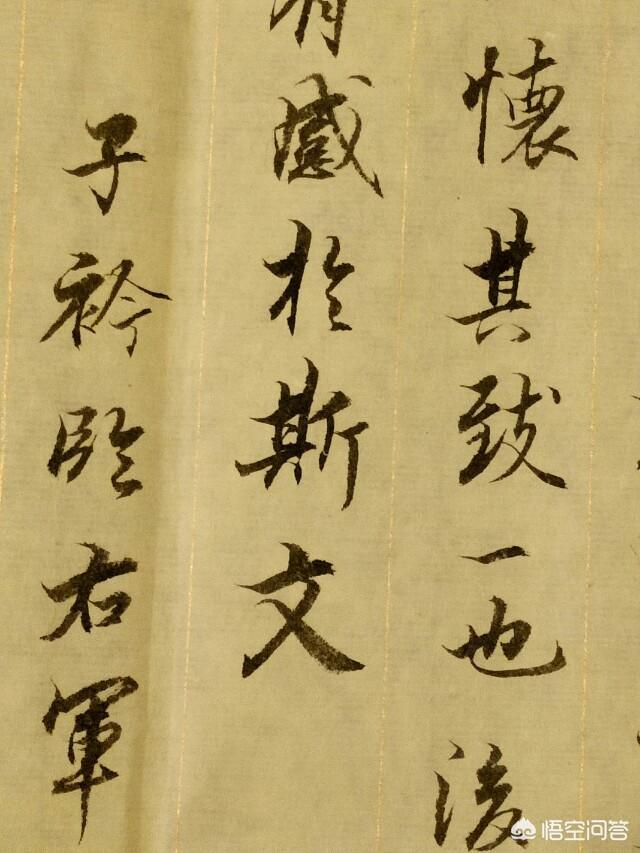 懷其致一也後
有感於斯文
子衿臨右軍
悟空问答